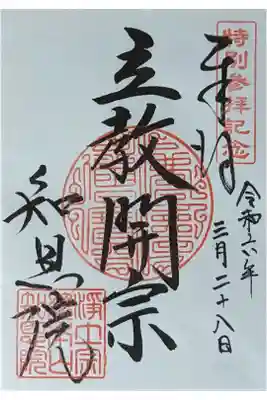 特別參拝記念
奉拝
令和六年
三月二十八日
立教開宗
知恩院
淨土宗